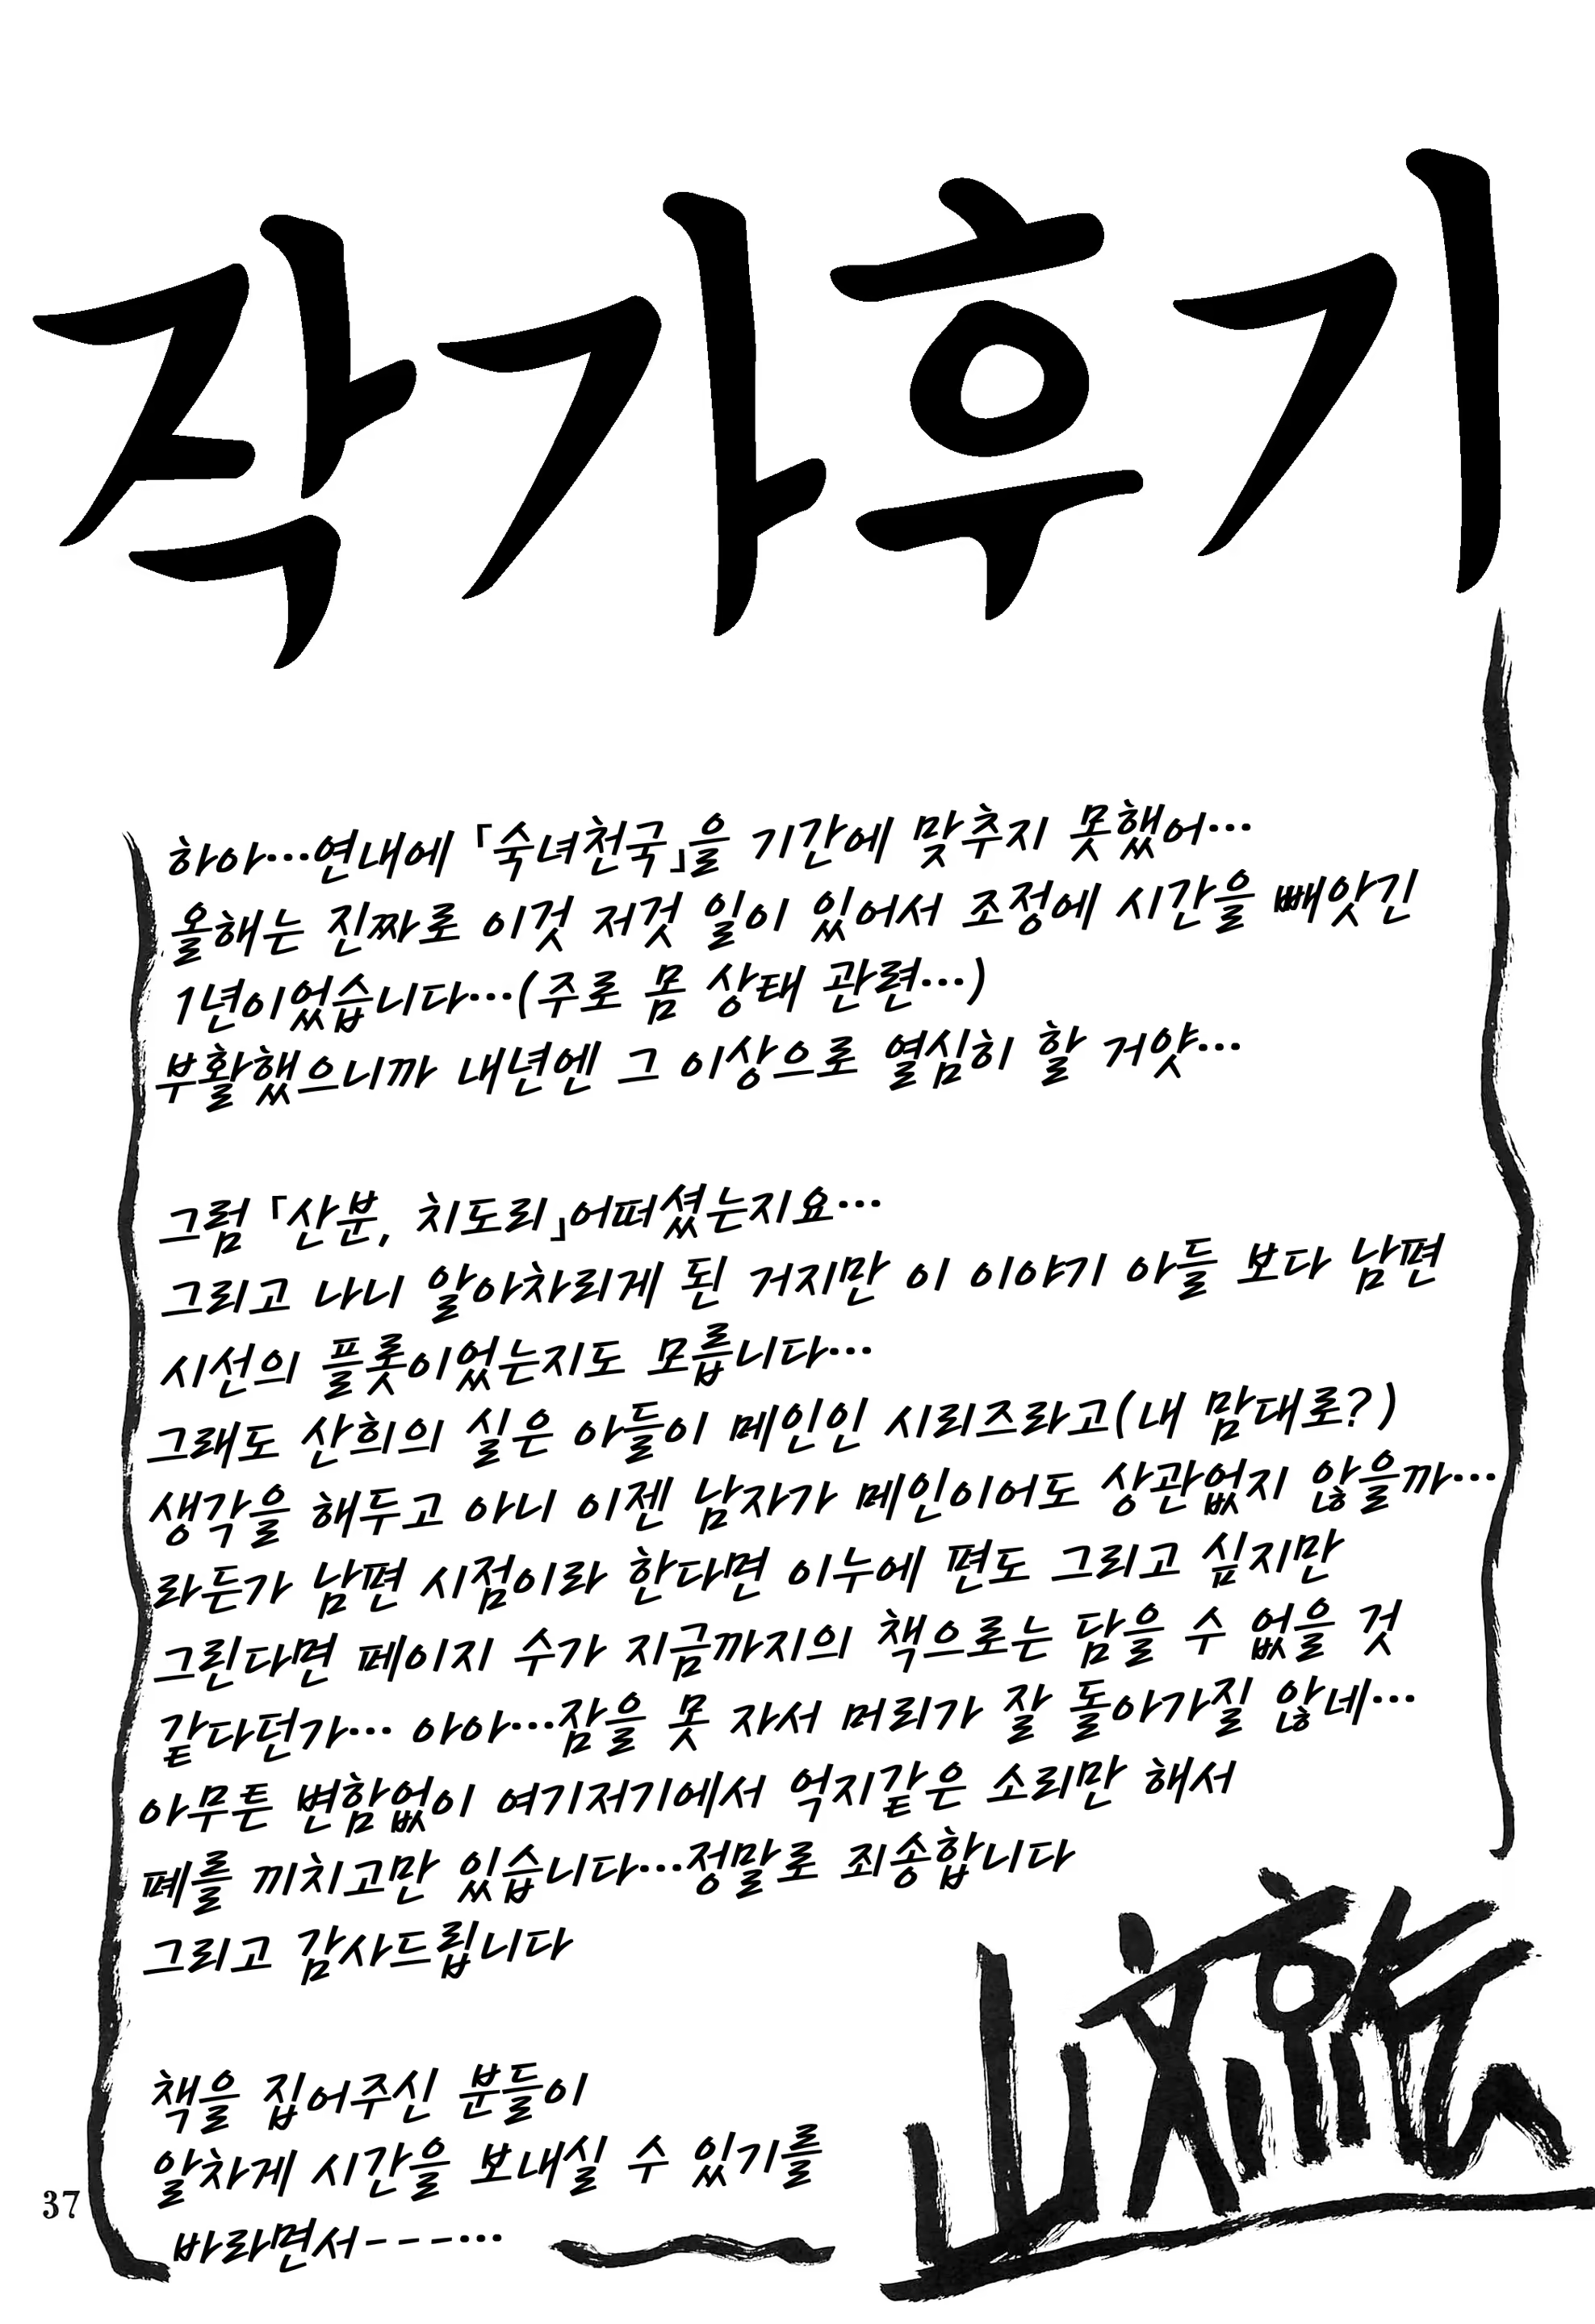 작가후기
하아…연내에 「숙녀천국」을 기간에 맞추지 못했어…
올해는 진짜로 이것 저것 일이 있어서 조정에 시간을 빼앗긴
1년이었습니다…(주로 몸 상태 관련…)
부활했으니까 내년엔 그 이상으로 열심히 할 거얏…
그럼 「산분, 치도리」어떠셨는지요…
그리고 나니 알아차리게 된 거지만 이 이야기 아들 보다 남편
시선의 플롯이었는지도 모릅니다…
그래도 산희의 실은 아들이 메인인 시리즈라고(내 맘대로?)
생각을 해두고 아니 이젠 남자가 메인이어도 상관없지 않을까…
라든가 남편 시점이라 한다면 이누에 편도 그리고 싶지만
그린다면 페이지 수가 지금까지의 책으로는 담을 수 없을 것
같다던가… 아아…잠을 못 자서 머리가 잘 돌아가질 않네…
아무튼 변함없이 여기저기에서 억지같은 소리만 해서
폐를 끼치고만 있습니다…정말로 죄송합니다
그리고 감사드립니다
책을 집어주신 분들이
알차게 시간을 보내실 수 있기를
바라면서---…
37